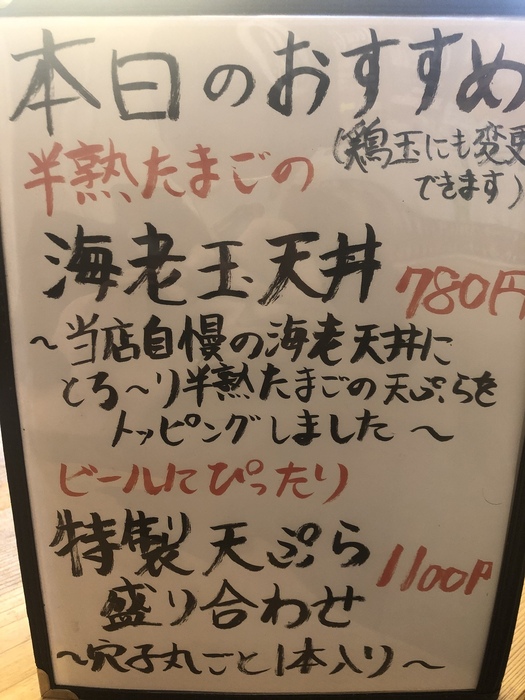 本日のおすすめ
半熟たまごの
(鶏玉にも変更
できます)
海老玉天丼
780円
～当店自慢の海老天丼に
とろ～り半熟たまごの天ぷらを
トッピングしました～
ビールにぴったり
特製天ぷら
盛り合わせ
1100円
～穴子丸ごと1本入り～